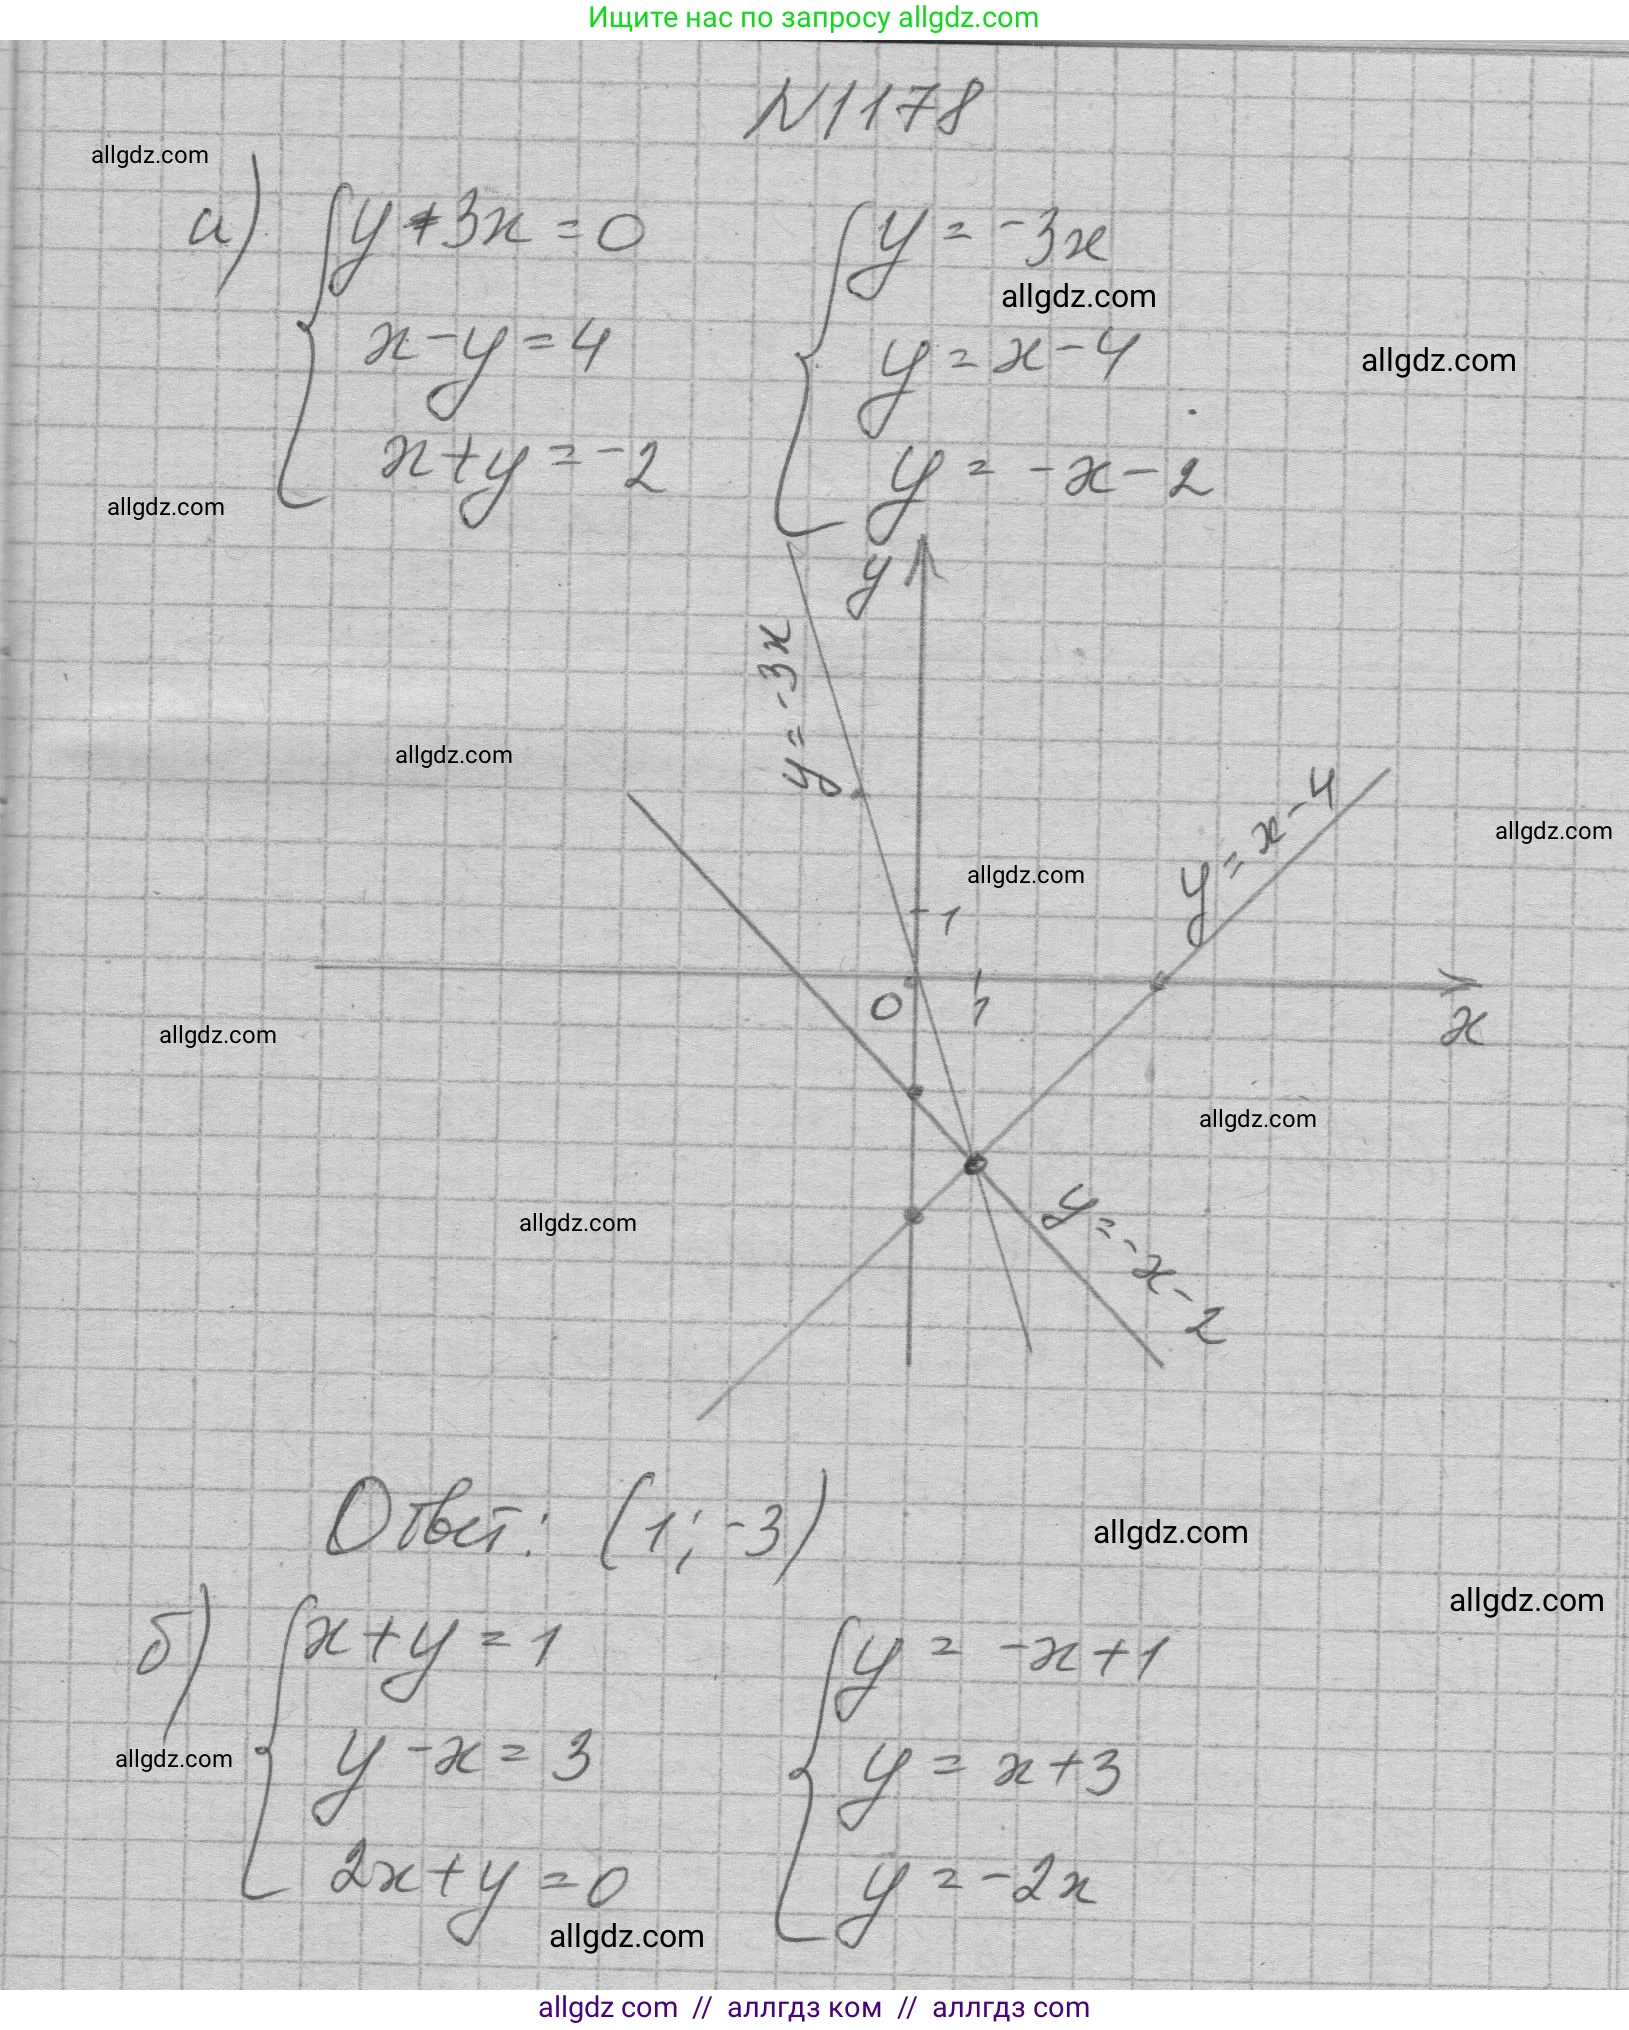 Ищите нас по запросу allgdz.com
N1178
allgdz.com
а) { y+3x=0 { y = -3x
allgdz.com
x-y=4 y = x-4
allgdz.com
x+y=-2 y = -x-2
allgdz.com
y
y = -3x
allgdz.com
y = x-4
allgdz.com
allgdz.com
1
0 1
x
allgdz.com
allgdz.com
allgdz.com
y=-x-2
Ответ: (1; -3)
allgdz.com
allgdz.com
б) { x+y=1 { y = -x+1
y-x=3 y = x+3
allgdz.com
2x+y=0 y = -2x
allgdz.com
allgdz com // аллгдз ком // аллгдз com